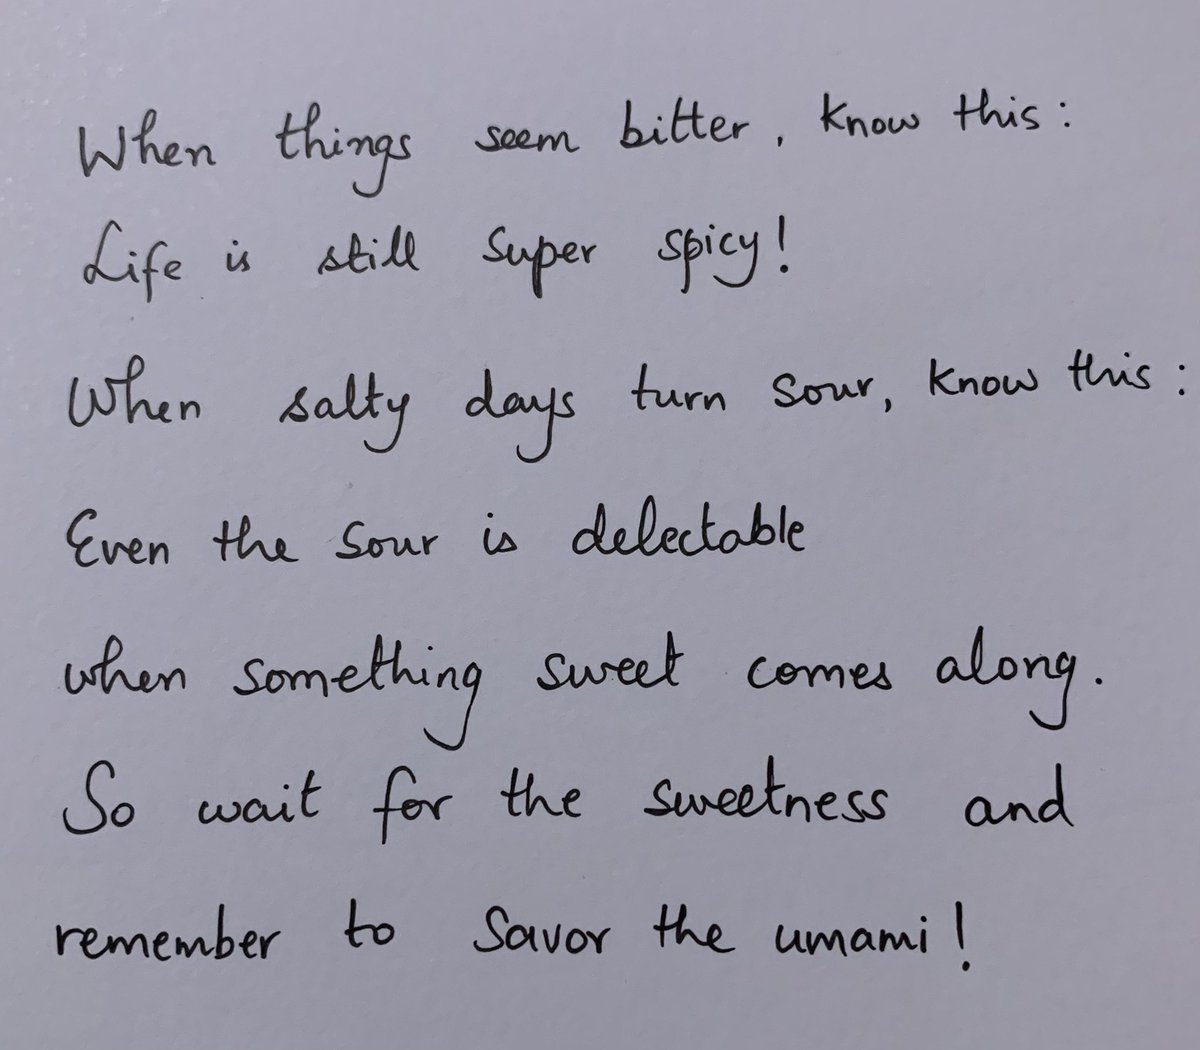 When things seem bitter, know this:
Life is still super spicy!
When salty days turn sour, know this:
Even the sour is delectable
when something sweet comes along.
So wait for the sweetness and
remember to savor the umami!